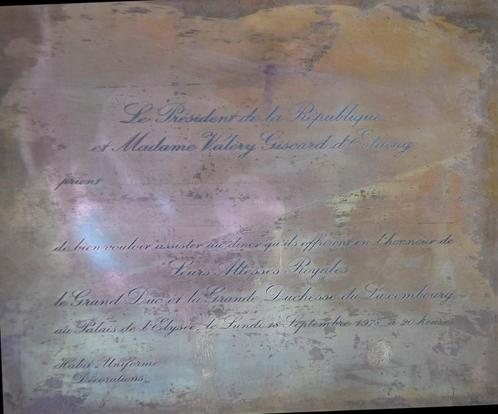 Le Président de la République
et Madame Valéry Giscard d'Estaing
prient
de bien vouloir assister au dîner qu'ils offriront en l'honneur de
Leurs Altesses Royales
le Grand Duc et la Grande Duchesse du Luxembourg
au Palais de l'Elysée, le Lundi 18 Septembre 1978, à 20 heures
Habit - Uniforme
Décorations_